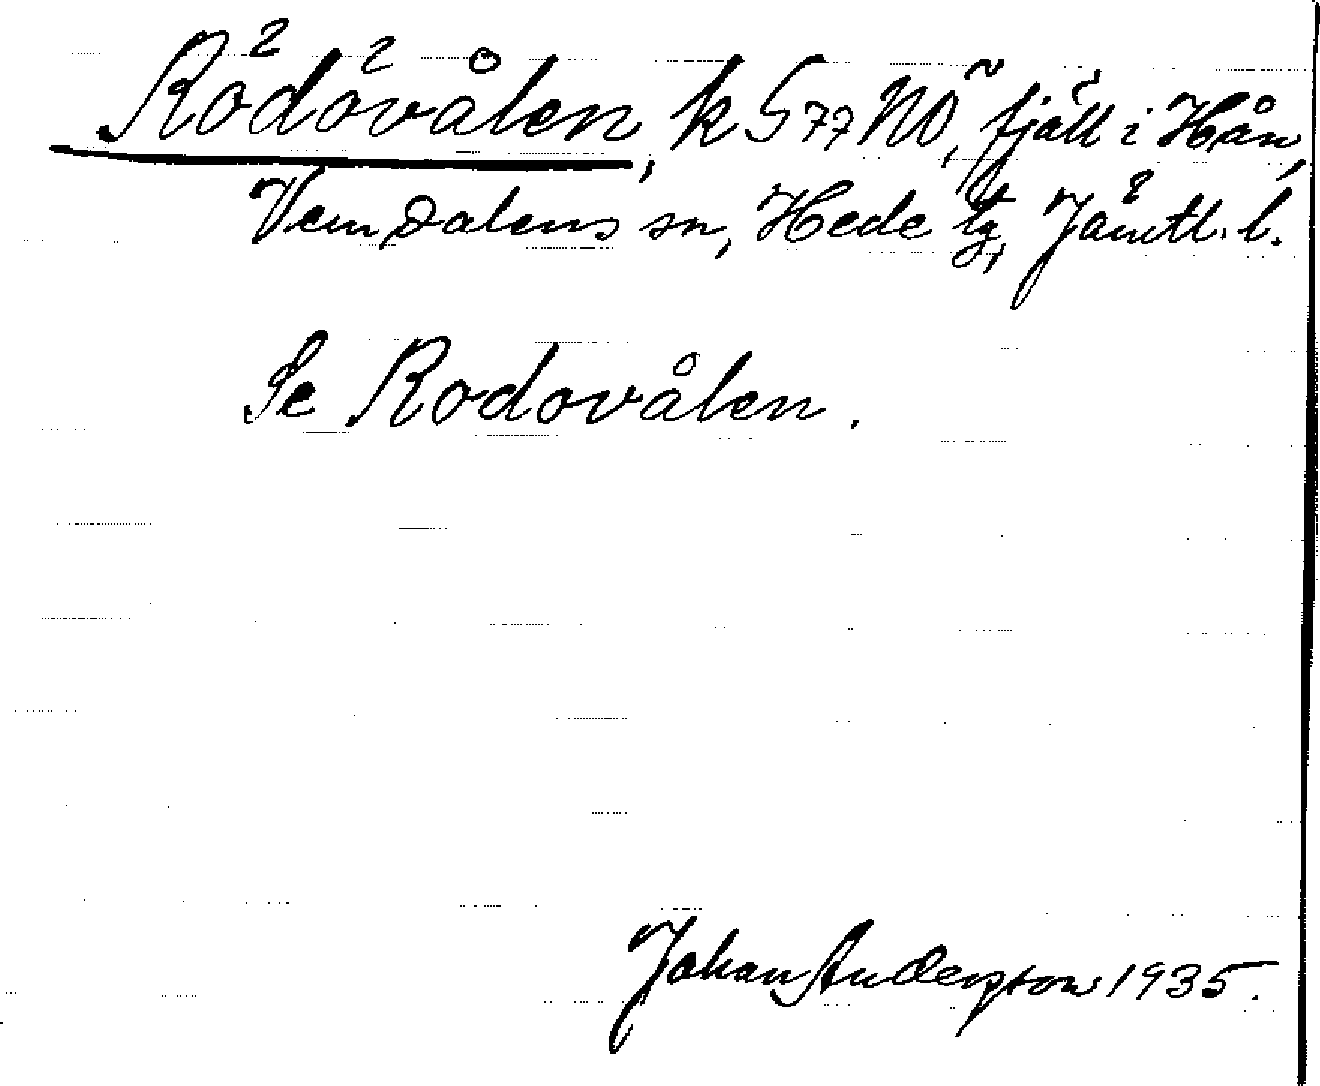 Rödövålen, k G 77 NÖ, fjäll i Hån,
Vemdalens sn, Hede tg, Jämtl. l.
Se Rodovålen.
Johan Anderson 1935.